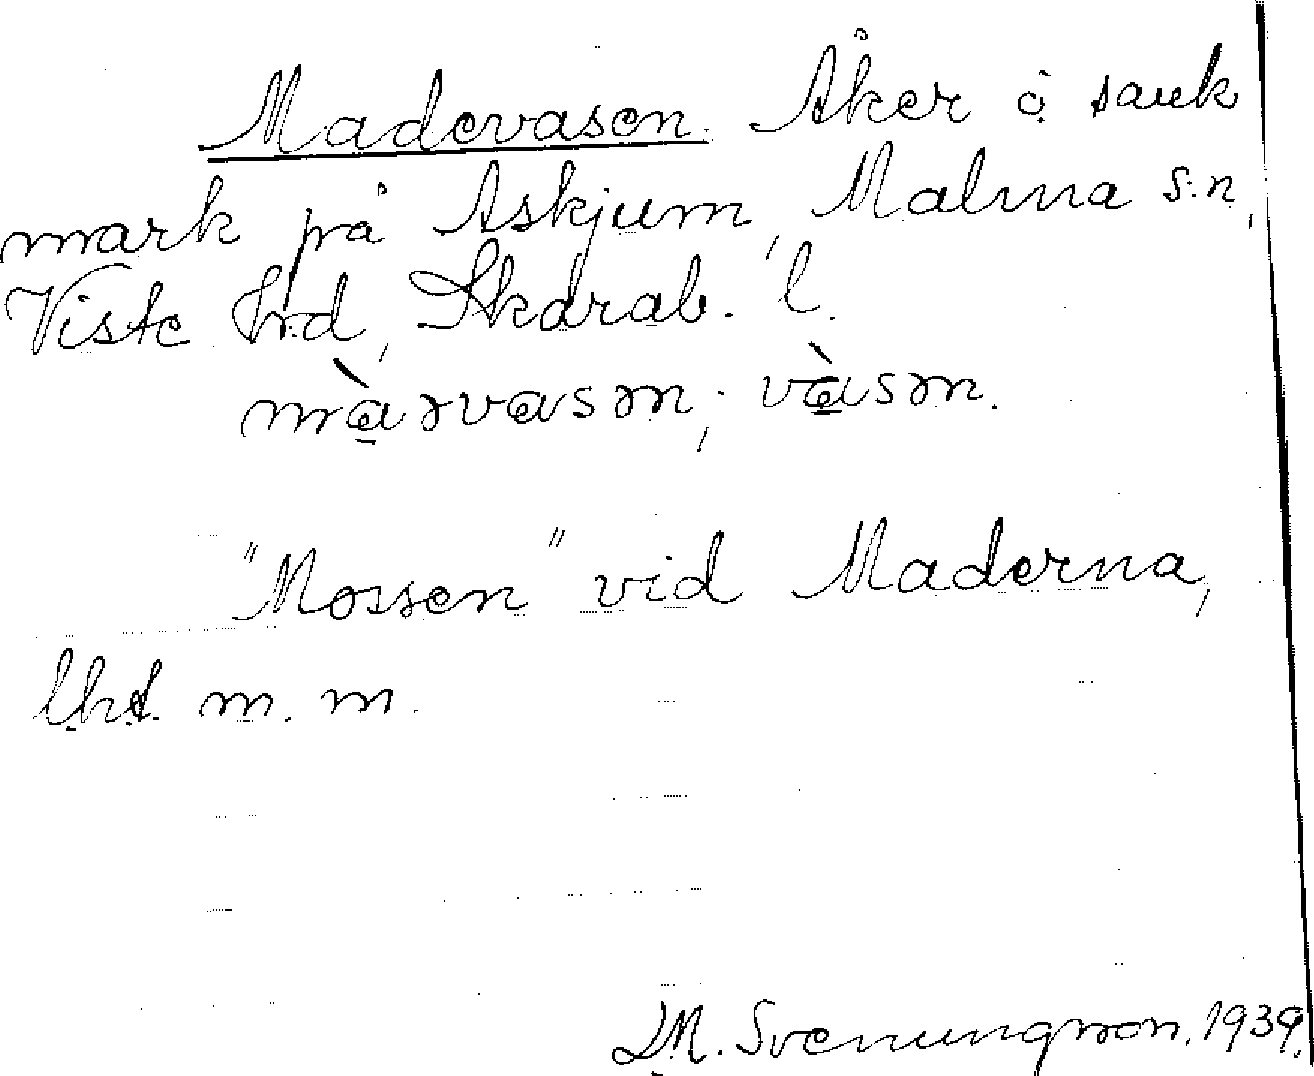 Madevasen. Åker å sank
mark på Askjum, Malma sn,
Viste hrd, Skarab. l.
mɑ̀əvɑsən; vɑ̀sən.
"Mossen" vid Maderna,
lht m. m.
M. Svenungsson. 1939.